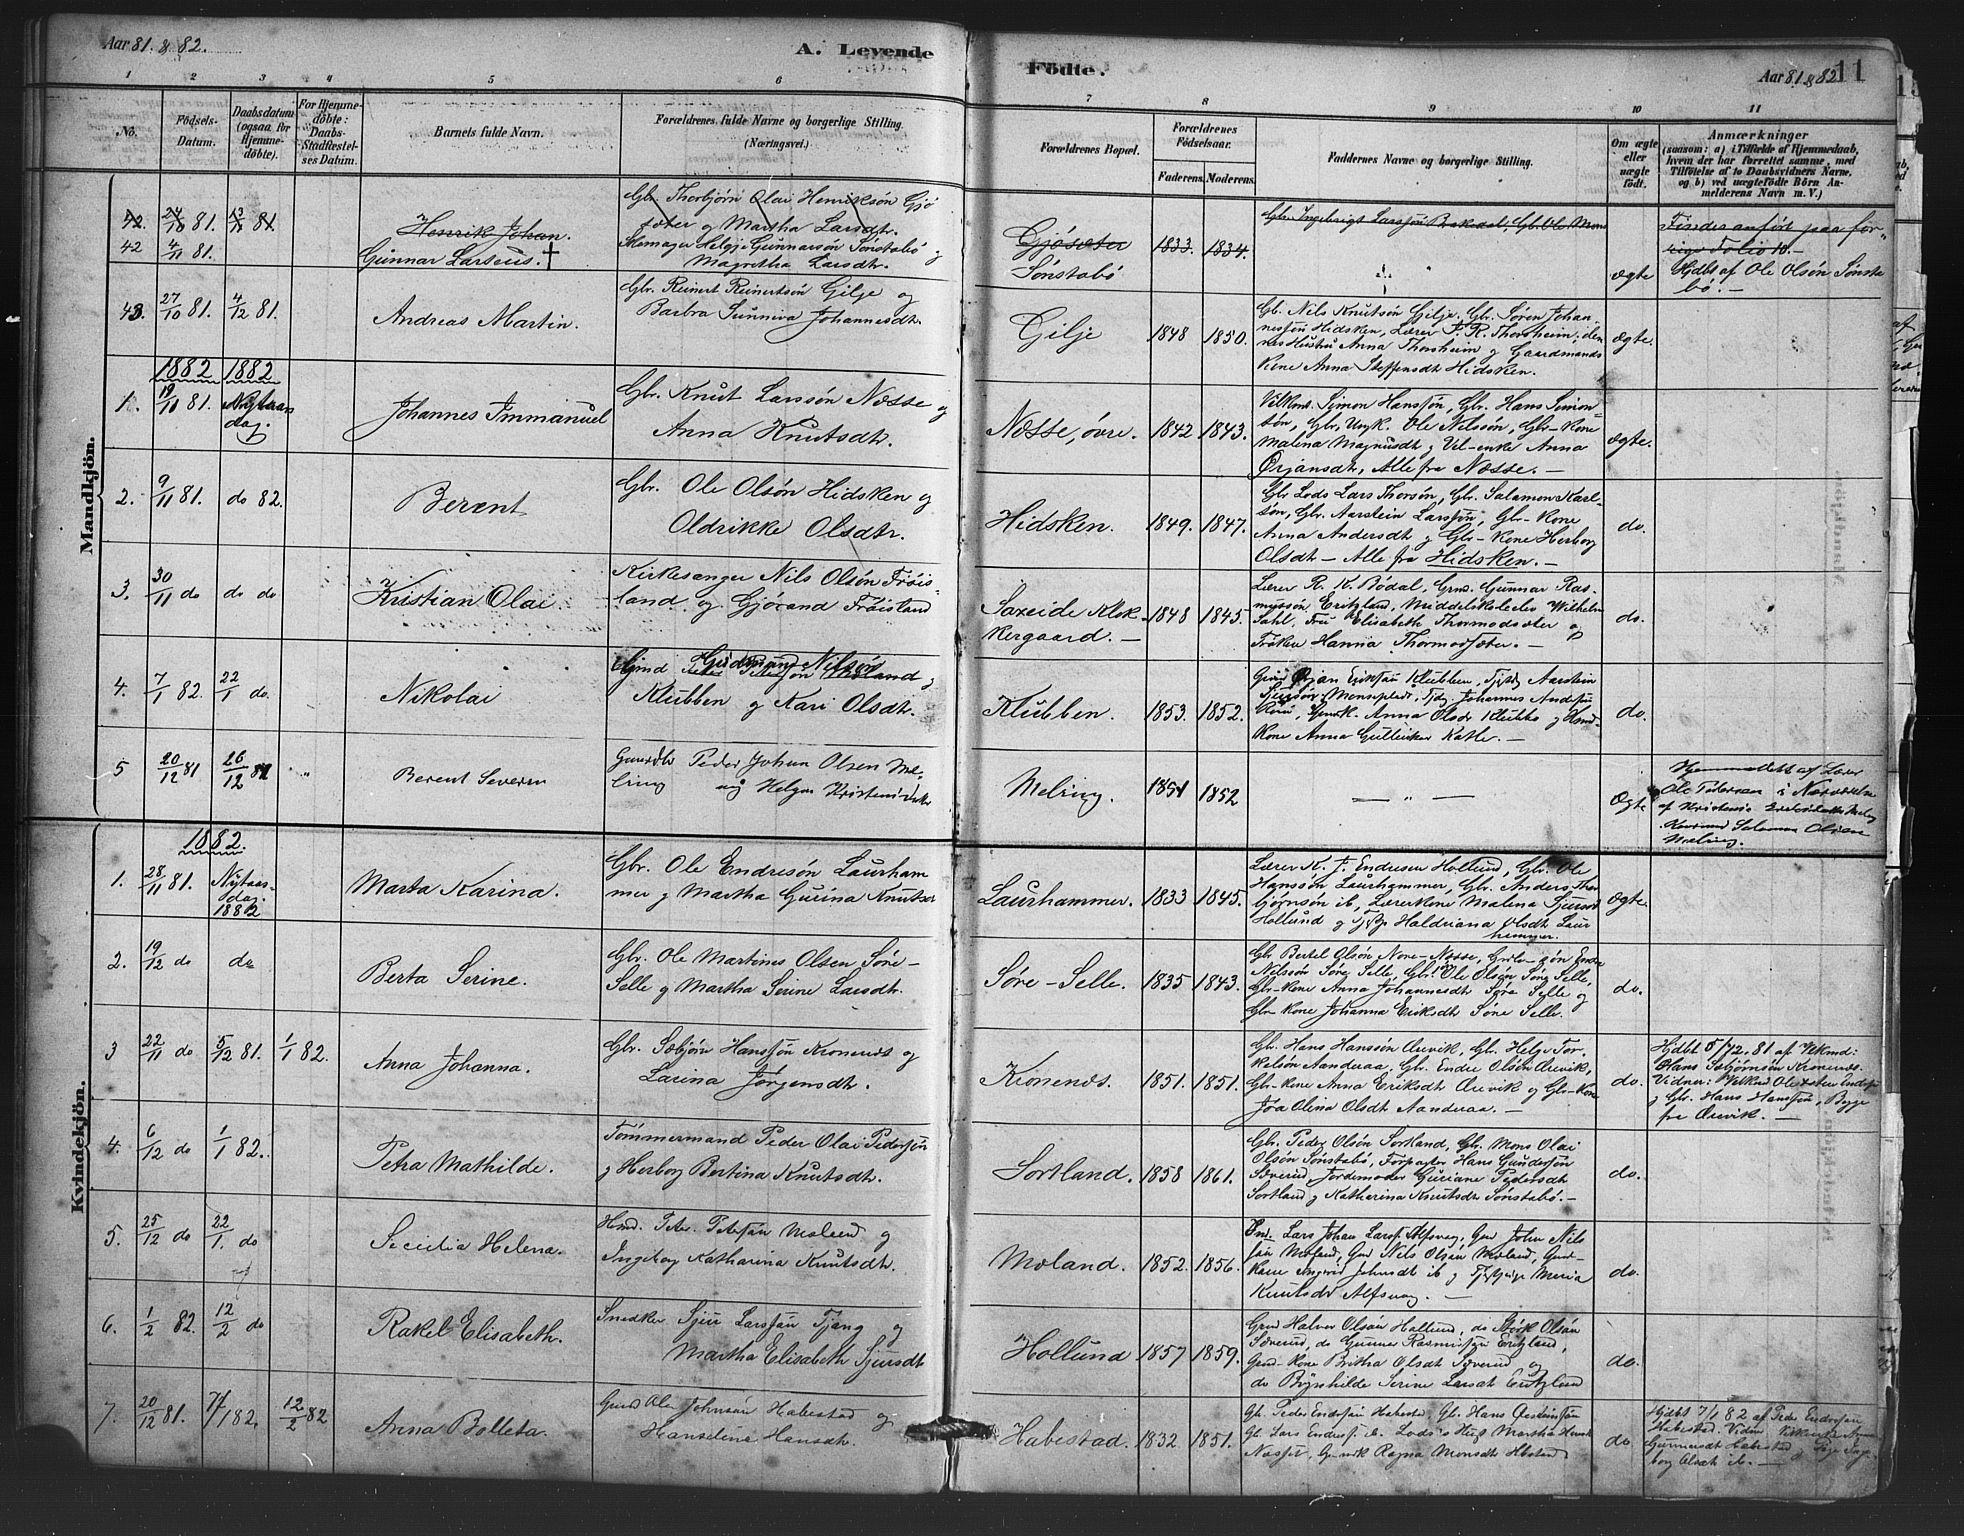 Aar 81 & 82.
A. Levende
Födte.
Aar 81 & 82
11
1 2 3 4 5 6
7 8 9 10 11
No.
Födsels-
Datum.
Daabsdatum
(ogsaa for
Hjemme-
döbte).
For Hjemme-
döbte:
Daabs-
Stadfæstel-
ses Datum.
Barnets fulde Navn.
Forældrenes fulde Navne og borgerlige Stilling
(Næringsvei.)
Forældrenes Bopæl.
Forældrenes
Födselsaar.
Faderens. Moderens.
Faddernes Navne og borgerlige Stilling.
Om ægte
eller
uægte
født.
Anmærkninger
(saasom: a) i Tilfælde af Hjemmedaab,
hvem der har forrettet samme, med
Tilföielse af to Daabsvidners Navne,
og b) ved uægtefödte Börn An-
melderens Navn m. V.)
Mandkjön.
42.
Henrik Johan.
Gbr. Thorbjörn Olai Henriksön Gjö
sæter og Martha Larsdtr.
Gjösæter
1833. 1834.
Gbr. Ingebrigt Larssön Brakedal, Gbr. Ole Mons
Findes anfört paa for-
rige Folio 10.
42 4/11 81.
Gunnar Larteus. †
Skomager Helgje Gunnarsön Sönstabö og
Magretha Larsdtr.
Sönstabö
ægte
Hjdbt af Ole Olsön Sönsta
bö. —
43. 27/10 81. 4/12 81.
Andreas Martin.
Gbr. Reinert Reinertsön Gilje og
Barbra Sunniva Johannesdtr.
Gilje
1848 1850.
Gb. Nils Knutsön Gilje, Gbr. Sören Johan-
nessön Hidsken, Lærer F. R. Thorsheim; den-
nes Hustru Anna Thorsheim og Gaardmands
Kone Anna Steffensdt Hidsken.
ægte.
1882 1882
1. 19/11 81. Nytaars
dag.
Johannes Immanuel
Gbr. Knut Larssön Næsse og
Anna Knutsdtr.
Næsse, övre.
1842 1843.
Vilkont. Simon Hanssön, Gbr. Hans Simon-
sön, Gbr. Ungk. Ole Nilssön, Gbr-Kone
Malena Magnusdt og Vil-enke Anna
Örjansdt, Alle fra Næsse. —
ægte.
2. 9/11 81. do 82.
Berent
Gbr. Ole Olsön Hidsken og
Oldrikke Olsdtr.
Hidsken.
1849. 1847.
Gbr Lods Lars Thorsön, Gbr. Salamon Karl-
sön, Gbr. Aarstein Larssön, Gbr-Kone
Anna Andersdt og Gbr-Kone Herborg
Olsdt — Alle fra Hidsken. —
do.
3. 30/11 do do do
Kristian Olai
Kirkesanger Nils Olsön Fröis-
land og Gjörand Fröisland
Saxeide Klok-
kergaard. —
1848 1845.
Lærer R. K. Bödal, Grnd. Gunnar Ras-
mussön Eritzland, Middelskoleelev Wilhelm
Dahl, Fru Elisabeth Thormodsæter og
Fröken Hanna Thormodsæter. —
do.
4. 7/1 82. 22/1 do.
Nikolai
Gudmund Nilsön
Klubben og Kari Olsdtr.
Klubben.
1853. 1852.
Kone Anna Gulleiksr Katle. —
do.
5 20/12 81 26/12 81 "
Berent Severin
Gaardbr Peder Johan Olsen Me-
ling og Helga Kristensdatr
Meling.
1851 1852
— " —
Ægte
Hjemmedöbt af Lærer
Ole Pedersen i Nærværelse
Salamon Olsen
Meling.
Kvindekjön.
1882.
1. 28/11 81. Nytaars-
dag.
1882
Marta Karina.
Gbr. Ole Endresön Laurham
mer og Martha Gurina Knutsdr
Laurhammer.
1833 1845.
Lærer K. J. Endresen Hollund, Gbr. Ole
Hanssön Laurhammer, Gbr. Anders Thor
björnsön ib, Lærerkone Malena Sjursdt
Hollund og Haldriana Olsdt Laur
hammer.
ægte
2. 19/12 do do
Berta Serine.
Gbr. Ole Martines Olsen Söre-
Selle og Martha Serine Larsdtr.
Söre-Selle.
1835 1843.
Gbr Bertel Olsön Nore-Næsse, Gbr-sön Endre
Nilssön Söre Selle, Gbr. Ole Olsön Söre Selle,
Gbr-Kone Anna Johannesdt Söre Selle og
Gbr Kone Johanna Eriksdt Söre Selle.
do.
3 22/11 do 5/12 81. 1/1 82.
Anna Johanna.
Gbr. Sæbjörn Hanssön Kronenæs og
Larina Jörgensdtr.
Kronenæs.
1851. 1851.
Gbr. Hans Hanssön Ærevik, Gbr. Helge Tor-
kelsön Aanderaa, Gbr. Endre Olsön Ærevik,
Gbr-Kone Anna Eriksdt Ærevik og Gbr-Kone
Joa Olina Olsdt Aanderaa. —
do.
Hjdbt 5/12. 81 af Vilkmd:
Hans Sæbjörnsön Kronenæs.
og Gbr. Hans Hanssön, Begge
fra Ærevik. —
4. 6/12 do 1/1 82.
Petra Mathilde.
Tömmermand Peder Olai Pedersön
og Herborg Bertina Knutsdtr.
Sortland.
1858 1861.
Gbr. Peder Olsön Sortland, Gbr. Mons Olai
Olsön Sönstabö, Forpagter Hans Gundersön
Sæverud, Jordemoder Guriane Pedersdt
Sortland og Katharina Knutsdt Sönstabö. —
do.
5. 25/12 do 22/1. do
Secielia Helena.
Hmd. Peter Petersön Moland og
Ingeborg Katharina Knutsdtr.
Moland.
1852. 1856.
Lars Johan Larss. Alfsvaag, Gmd John Nils
sön Moland, Gmd Nils Olsön Moland, Gmd-
kone Ingerid Johnsdt ib og Maria
Knutsdr Alfsvaag. —
do.
6. 1/2 82. 12/2 do
Rakel Elisabeth.
Snedker Sjur Larssön Tjong og
Martha Elisabeth Sjursdt
Hollund
1857 1859.
Grnd Halvor Olsön Hollund, do Störk Olsön
Sæverud, do Gunnar Rasmussön Eritzland,
Gmd-Kone Britha Olsdt Sæverud og
do Brynhilde Serine Larsdt Eritzland
do.
7. 20/12 81. 7/1 82. 12/2 82
Anna Bolleta.
Gmd Ole Johnsön Habestad og
Hanselena Hansdtr.
Habestad.
1832 1851.
Gb. Peder Endresön Habestad, Gb. Hans Öisteinsön
Næsset, Gmdk Ragna Monsdt Hbstad
do.
Hjdbt 7/1 82 af Peder Endresön
Habestad.
Gunnarsdt Habestad og Inge-
borg Olsdt ib. —